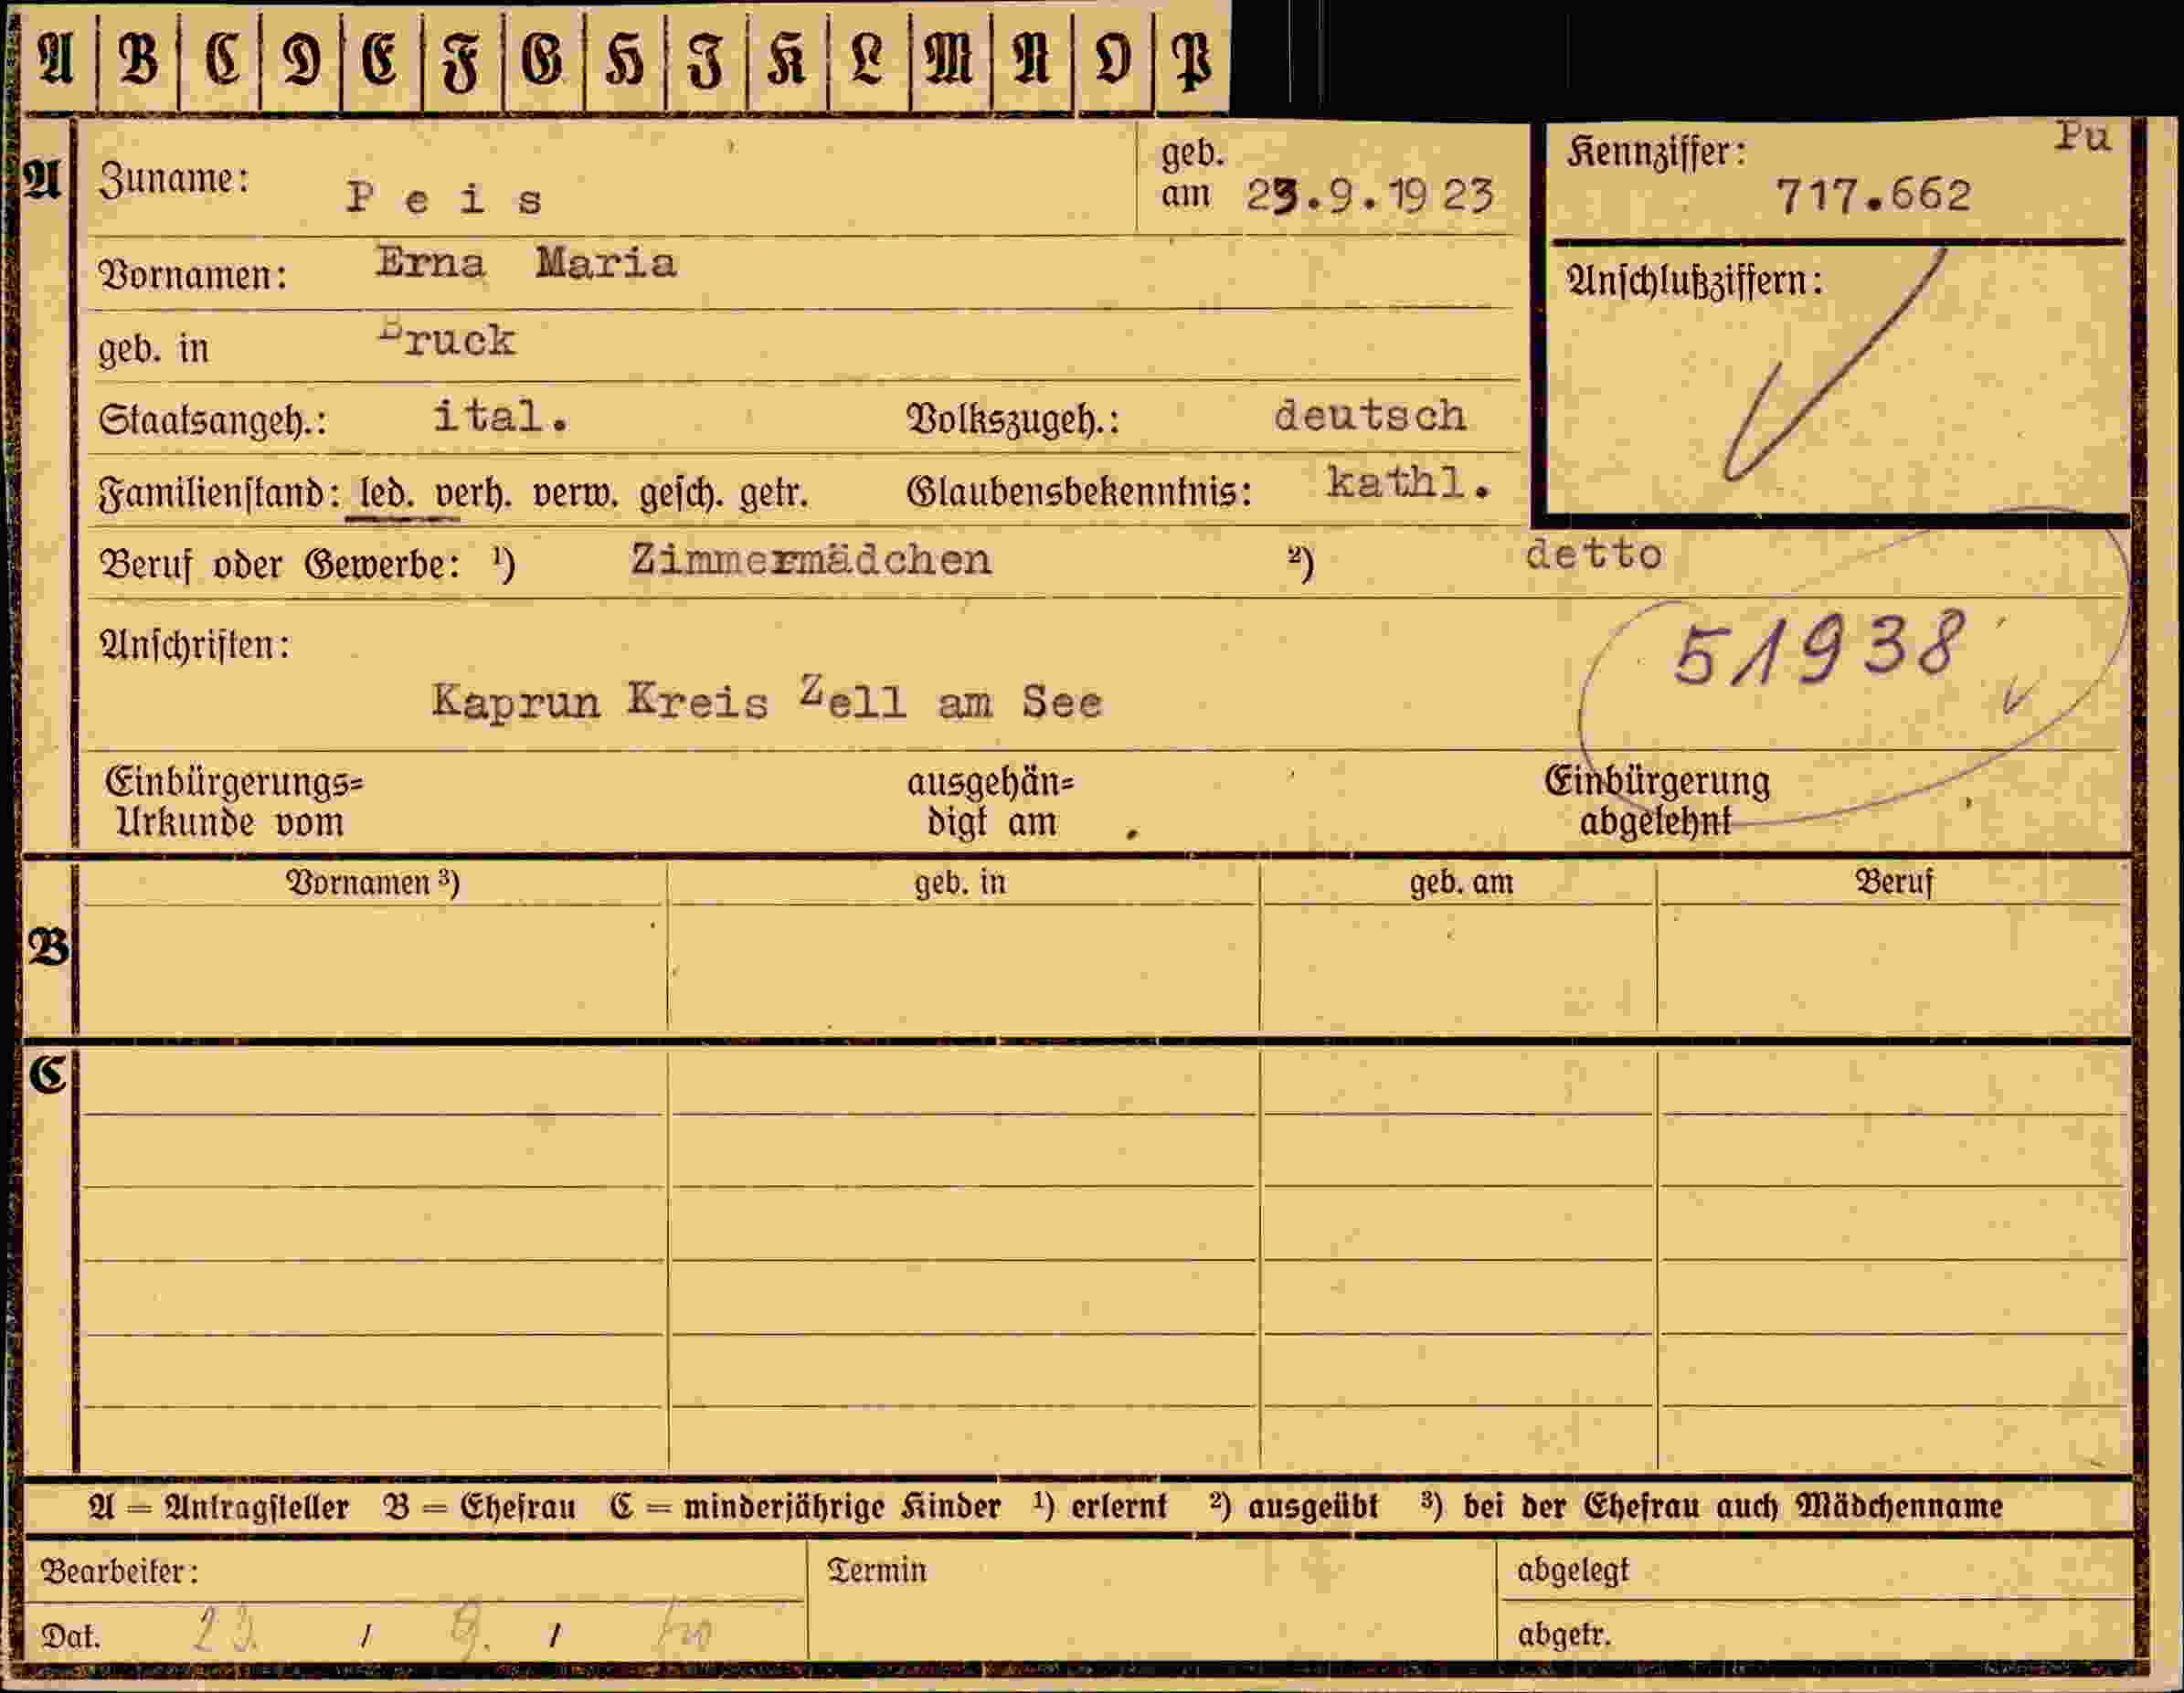 A B C D E F G H I K L M N O P
A Zuname: Peis geb. am 23.9.1923 Kennziffer: Pu 717.662
Vornamen: Erna Maria Anschlußziffern:
geb. in Bruck
Staatsangeh.: ital. Volkszugeh.: deutsch
Familienstand: led. verh. verw. gesch. getr. Glaubensbekenntnis: kathl.
Beruf oder Gewerbe: ¹) Zimmermädchen ²) detto
Anschriften: 51938
Kaprun Kreis Zell am See
Einbürgerungs= ausgehän= Einbürgerung
Urkunde vom digt am abgelehnt
Vornamen ³) geb. in geb. am Beruf
B
C
A = Antragsteller B = Ehefrau C = minderjährige Kinder ¹) erlernt ²) ausgeübt ³) bei der Ehefrau auch Mädchenname
Bearbeiter: Termin abgelegt
Dat. 23. / 9. / abgetr.